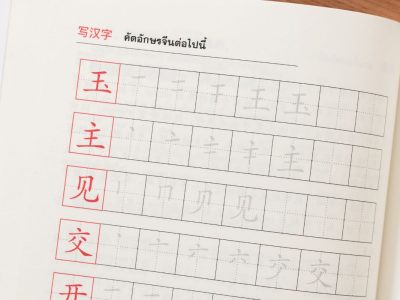 写汉字 คัดอักษรจีนต่อไปนี้
玉 一 二 干 王 玉
主 丶 亠 主
见 丨 冂 贝 见
交 丶 亠 六 交
开 一 二